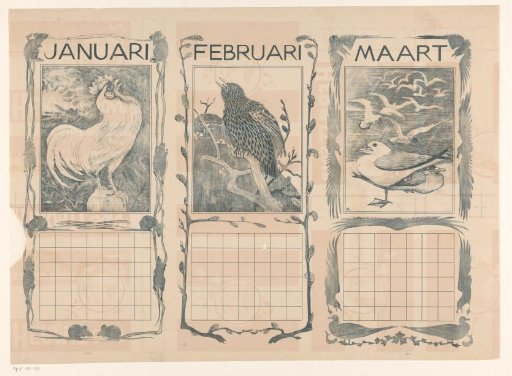 JANUARI
FEBRUARI
MAART